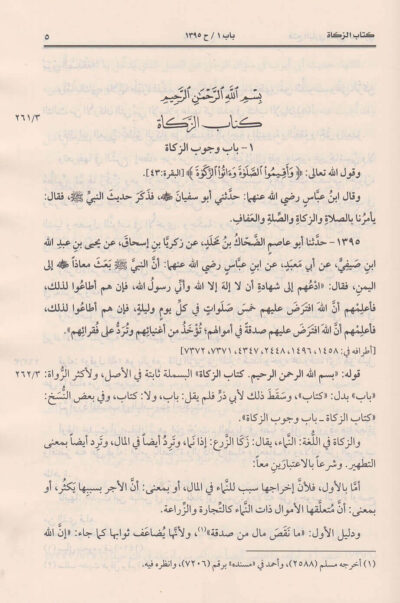 كتاب الزكاة
باب ١ / ح ١٣٩٥
٥
بِسْمِ اللَّهِ الرَّحْمَٰنِ الرَّحِيمِ
٢٦١/٣
كتاب الزَّكاة
١- باب وجوب الزكاة
وقولِ الله تعالى: ﴿وَأَقِيمُوا الصَّلَوٰةَ وَءَاتُوا الزَّكَوٰةَ﴾ [البقرة:٤٣].
وقال ابنُ عبَّاسٍ رضي الله عنهما: حدَّثني أبو سفيانَ ﷺ، فذَكَرَ حديثَ النبيِّ ﷺ، فقال:
يأمرُنا بالصلاةِ والزكاةِ والصِّلةِ والعَفافِ.
١٣٩٥ - حدَّثنا أبو عاصمٍ الضَّحّاكُ بنُ مَخْلَدٍ، عن زكريَّا بنِ إسحاقَ، عن يحيى بنِ عبدِ الله
ابنِ صَيْفيٍّ، عن أبي مَعبَدٍ، عن ابنِ عبَّاسٍ رضي الله عنهما: أنَّ النبيَّ ﷺ بَعَثَ معاذاً ﷺ إلى
اليمنِ، فقال: «ادعُهم إلى شهادةِ أن لا إلهَ إلا الله وأنِّي رسولُ الله، فإن هم أطاعُوا لذلك،
فأعلِمْهم أنَّ اللهَ افتَرَضَ عليهم خمسَ صَلَواتٍ في كلِّ يومٍ وليلةٍ، فإن هم أطاعُوا لذلك،
فأعلِمْهم أنَّ اللهَ افتَرَضَ عليهم صدقةً في أموالهم؛ تُؤْخَذُ من أغنيائِهم وتُرَدُّ على فُقرائِهم».
[أطرافه في: ١٤٥٨، ١٤٩٦، ٢٤٤٨، ٤٣٤٧، ٧٣٧١، ٧٣٧٢]
قوله: «بسم الله الرحمن الرحيم. كتاب الزكاة» البسملة ثابتة في الأصل، ولأكثر الرُّواة:
٢٦٢/٣
«باب» بدل: «كتاب»، وسَقَطَ ذلك لأبي ذرٍّ فلم يقل: باب، ولا: كتاب، وفي بعض النُّسَخ:
«كتاب الزكاة - باب وجوب الزكاة».
والزكاة في اللُّغة: النَّماء، يقال: زكَا الزَّرع: إذا نَما، وتَرِدُ أيضاً في المال، وتَرِد أيضاً بمعنى
التطهير. وشرعاً بالاعتبارَينِ معاً:
أمَّا بالأول، فلأنَّ إخراجها سبب للنَّماء في المال، أو بمعنى: أنَّ الأجر بسببها يَكثُر، أو
بمعنى: أنَّ مُتعلَّقها الأموال ذات النَّماء كالتِّجارة والزِّراعة.
ودليل الأول: «ما نَقَصَ مال من صدقة»(١)، ولأنَّها يُضاعَف ثوابها كما جاء: «إنَّ الله
(١) أخرجه مسلم (٢٥٨٨)، وأحمد في «مسنده» برقم (٧٢٠٦)، وانظره فيه.